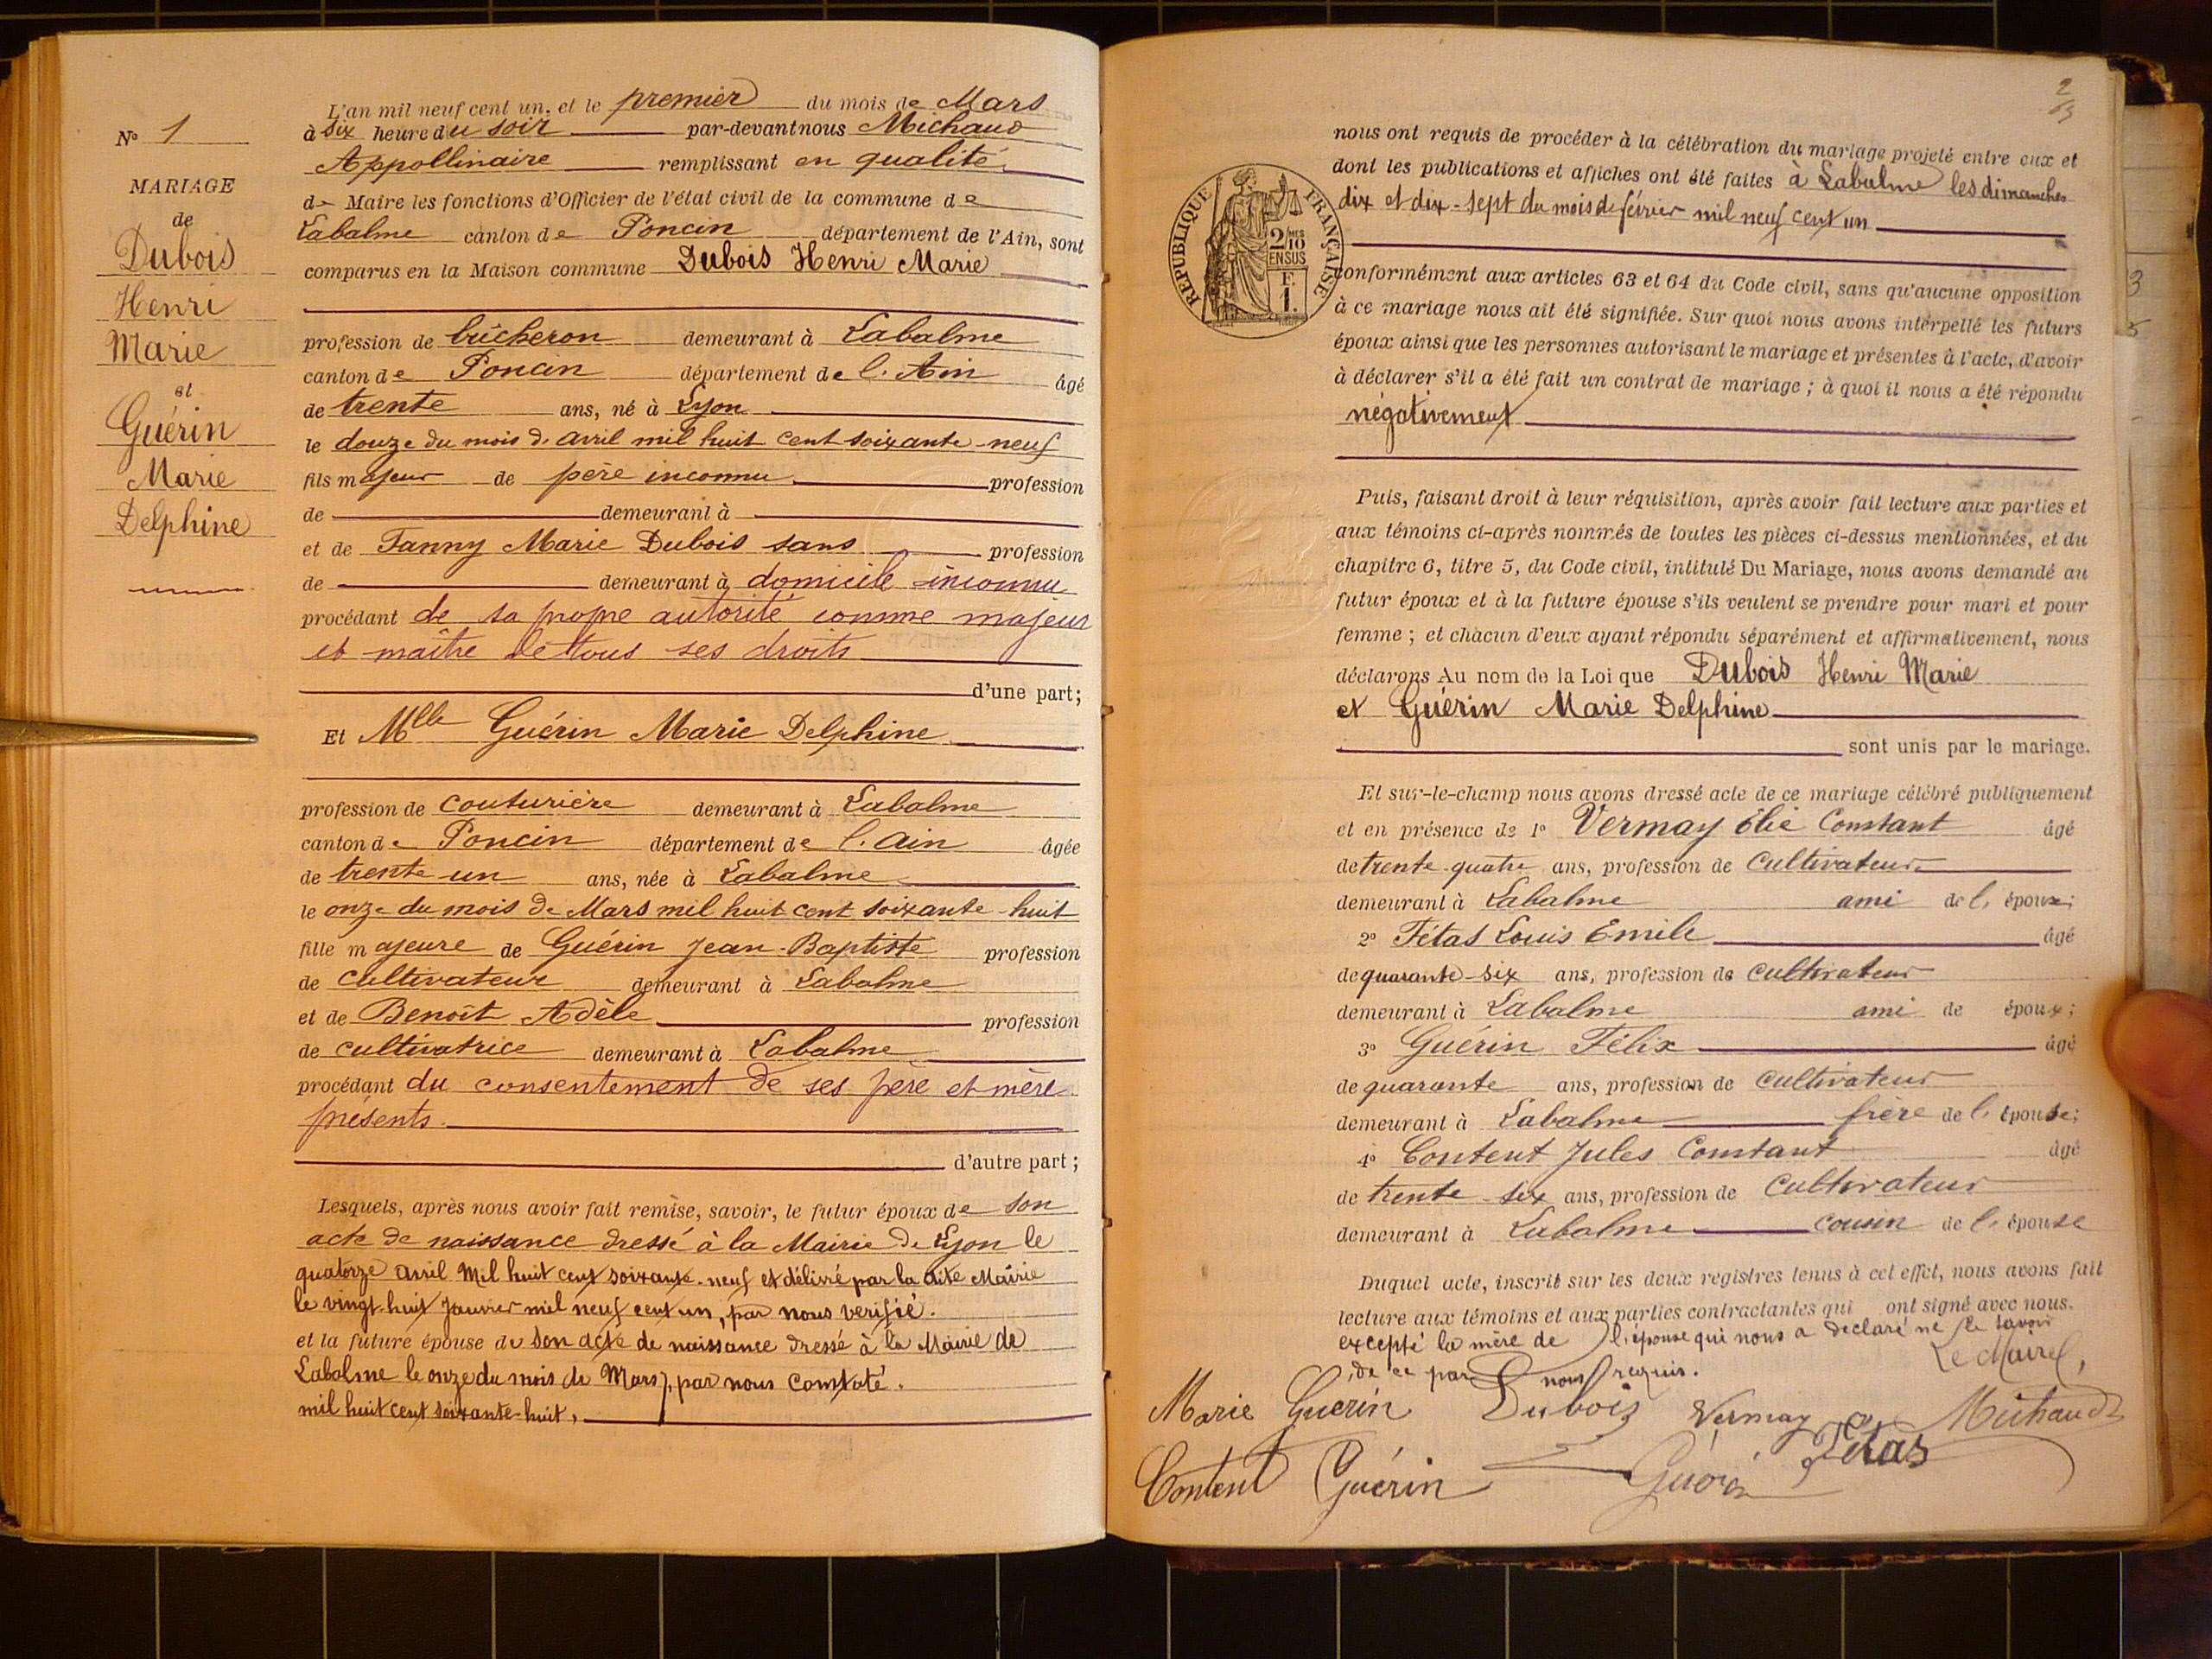 N° 1
MARIAGE
de
Dubois
Henri
Marie
et
Guérin
Marie
Delphine
L'an mil neuf cent un, et le premier du mois de Mars
à six heure du soir par-devant nous Michaud
Appollinaire remplissant en qualité
de Maire les fonctions d'Officier de l'état civil de la commune de
Labalme canton de Poncin département de l'Ain, sont
comparus en la Maison commune Dubois Henri Marie
profession de bûcheron demeurant à Labalme
canton de Poncin département de l'Ain âgé
de trente ans, né à Lyon
le douze du mois d'avril mil huit cent soixante-neuf
fils majeur de père inconnu profession
de demeurant à
et de Fanny Marie Dubois sans profession
de demeurant à domicile inconnu
procédant de sa propre autorité comme majeur
et maître de tous ses droits
d'une part;
Et Mlle Guérin Marie Delphine
profession de couturière demeurant à Labalme
canton de Poncin département de l'Ain âgée
de trente-un ans, née à Labalme
le onze du mois de Mars mil huit cent soixante-huit
fille majeure de Guérin Jean-Baptiste profession
de cultivateur demeurant à Labalme
et de Benoît Adèle profession
de cultivatrice demeurant à Labalme
procédant du consentement de ses père et mère
présents.
d'autre part;
Lesquels, après nous avoir fait remise, savoir, le futur époux de son
acte de naissance dressé à la Mairie de Lyon le
quatorze avril mil huit cent soixante-neuf et délivré par la dite Mairie
le vingt-huit janvier mil neuf cent un, par nous vérifié.
et la future épouse de son acte de naissance dressé à la Mairie de
Labalme le onze du mois de Mars, par nous constaté.
mil huit cent soixante-huit,
2
nous ont requis de procéder à la célébration du mariage projeté entre eux et
dont les publications et affiches ont été faites à Labalme les dimanches
dix et dix-sept du mois de février mil neuf cent un
RÉPUBLIQUE FRANÇAISE
2/10
EN SUS
F.
1.
conformément aux articles 63 et 64 du Code civil, sans qu'aucune opposition
à ce mariage nous ait été signifiée. Sur quoi nous avons interpellé les futurs
époux ainsi que les personnes autorisant le mariage et présentes à l'acte, d'avoir
à déclarer s'il a été fait un contrat de mariage; à quoi il nous a été répondu
négativement
Puis, faisant droit à leur réquisition, après avoir fait lecture aux parties et
aux témoins ci-après nommés de toutes les pièces ci-dessus mentionnées, et du
chapitre 6, titre 5, du Code civil, intitulé Du Mariage, nous avons demandé au
futur époux et à la future épouse s'ils veulent se prendre pour mari et pour
femme; et chacun d'eux ayant répondu séparément et affirmativement, nous
déclarons Au nom de la Loi que Dubois Henri Marie
et Guérin Marie Delphine
sont unis par le mariage.
Et sur-le-champ nous avons dressé acte de ce mariage célébré publiquement
et en présence de 1° Vermay Élie Constant âgé
de trente-quatre ans, profession de cultivateur
demeurant à Labalme ami de l' époux;
2° Fétas Louis Émile âgé
de quarante-six ans, profession de cultivateur
demeurant à Labalme ami de époux;
3° Guérin Félix âgé
de quarante ans, profession de cultivateur
demeurant à Labalme frère de l' épouse;
4° Content Jules Constant âgé
de trente-six ans, profession de cultivateur
demeurant à Labalme cousin de l' épouse
Duquel acte, inscrit sur les deux registres tenus à cet effet, nous avons fait
lecture aux témoins et aux parties contractantes qui ont signé avec nous.
excepté la mère de l'épouse qui nous a déclaré ne le savoir
de ce par nous requis.
Le Maire,
Marie Guerin Dubois Vermay Fétas Michaud
Content Guérin Guérin